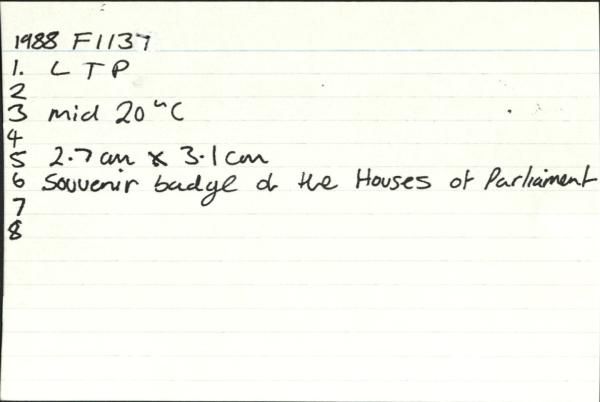 1988 F1137
1. L T P
2
3 mid 20th C
4
5 2.7 cm x 3.1 cm
6 Souvenir badge of the Houses of Parliament
7
8